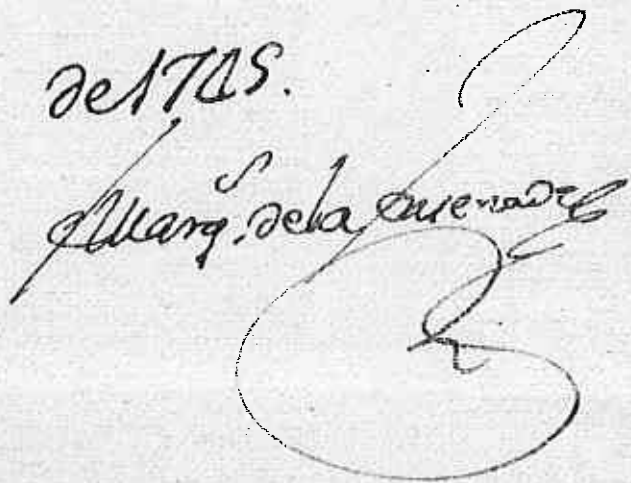 de 1745.
El Marq.s de la Ensenada